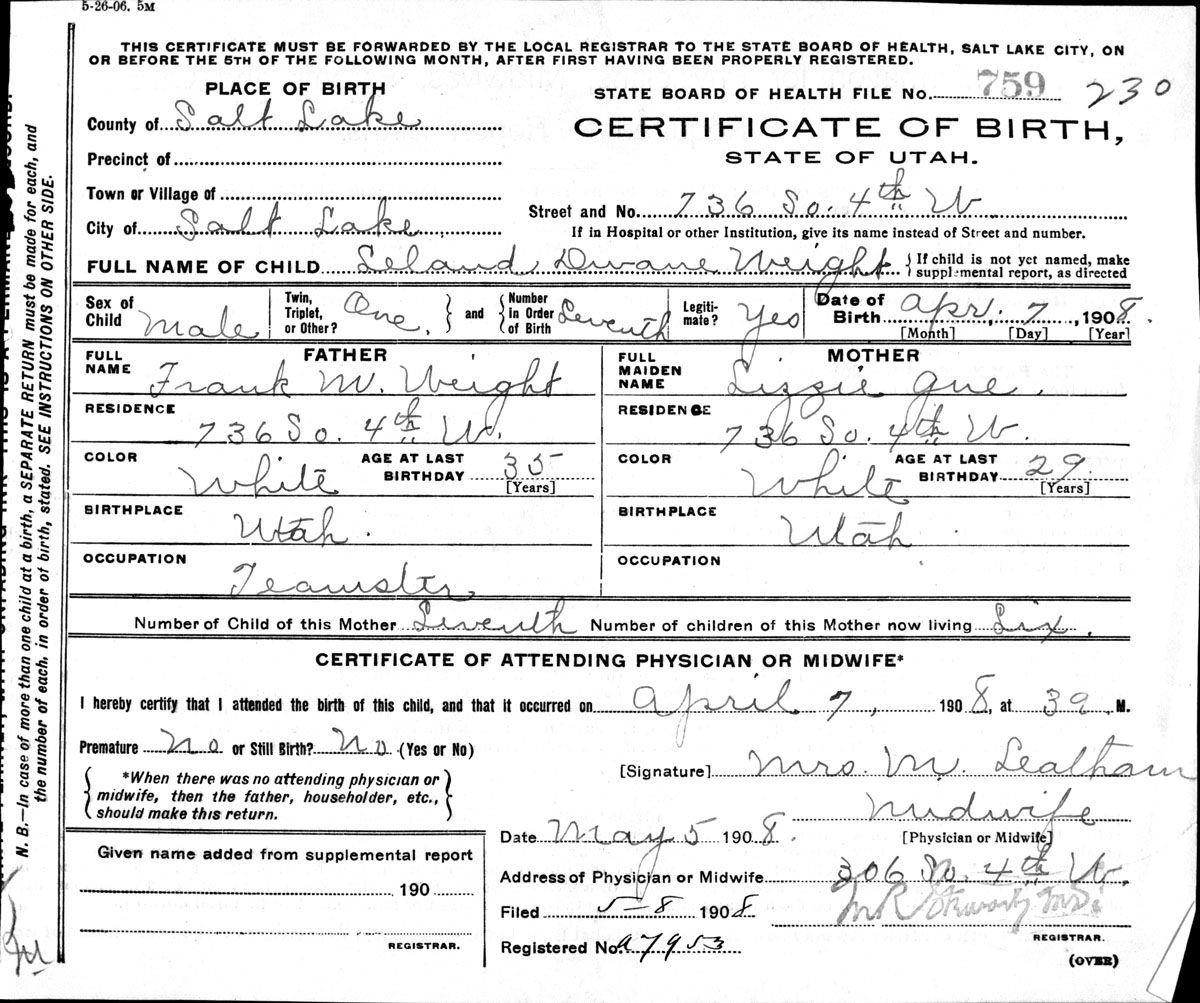 5-26-06. 5M
THIS CERTIFICATE MUST BE FORWARDED BY THE LOCAL REGISTRAR TO THE STATE BOARD OF HEALTH, SALT LAKE CITY, ON
OR BEFORE THE 5TH OF THE FOLLOWING MONTH, AFTER FIRST HAVING BEEN PROPERLY REGISTERED.
PLACE OF BIRTH
STATE BOARD OF HEALTH FILE No. 759 230
County of Salt Lake
CERTIFICATE OF BIRTH,
STATE OF UTAH.
Precinct of
Town or Village of
Street and No. 736 So. 4th W
City of Salt Lake
If in Hospital or other Institution, give its name instead of Street and number.
FULL NAME OF CHILD Leland Dwane Weight { If child is not yet named, make
supplemental report, as directed
Sex of Child Male Twin, Triplet, or Other? One } and { Number in Order of Birth Seventh Legiti-mate? Yes Date of Birth Apr. 7, 1908.
[Month] [Day] [Year]
FATHER
FULL NAME Frank M. Weight
RESIDENCE
736 So. 4th W.
COLOR White AGE AT LAST BIRTHDAY 35
[Years]
BIRTHPLACE
Utah.
OCCUPATION
Teamster
MOTHER
FULL MAIDEN NAME Lizzie Gue.
RESIDENCE
736 So. 4th W.
COLOR White AGE AT LAST BIRTHDAY 29
[Years]
BIRTHPLACE
Utah
OCCUPATION
Number of Child of this Mother Seventh Number of children of this Mother now living Six.
CERTIFICATE OF ATTENDING PHYSICIAN OR MIDWIFE*
I hereby certify that I attended the birth of this child, and that it occurred on April 7, 1908, at 3 a M.
Premature No or Still Birth? No (Yes or No)
*When there was no attending physician or
midwife, then the father, householder, etc.,
should make this return.
[Signature] Mrs. M. Lealham
Midwife
[Physician or Midwife]
Date May 5 1908.
Address of Physician or Midwife 306 So. 4th W.
Filed 5-8 1908
REGISTRAR.
Registered No. a7953
(OVER)
Given name added from supplemental report
190
REGISTRAR.
N. B.—In case of more than one child at a birth, a SEPARATE RETURN must be made for each, and
the number of each, in order of birth, stated. SEE INSTRUCTIONS ON OTHER SIDE.